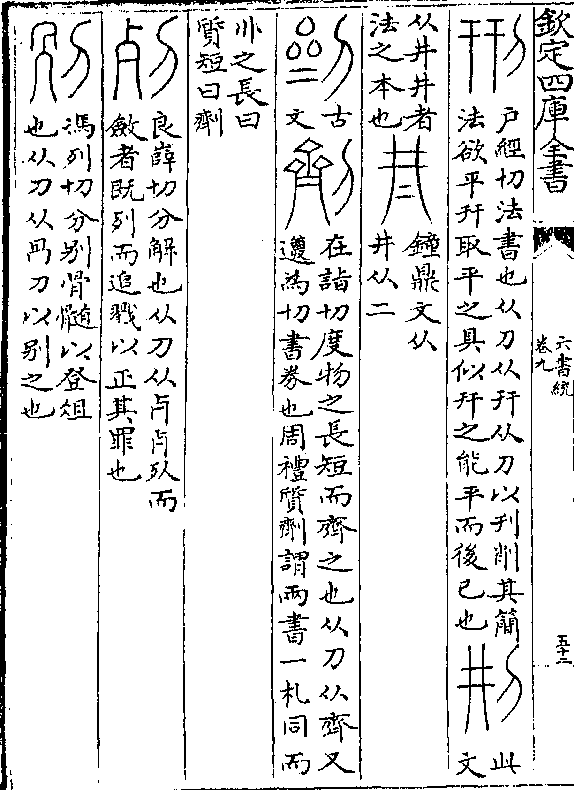 欽定四庫全書
六書統
卷九
五十三
戶經切法書也从刀从幵从刀以刋削其簡
法欲平幵取平之具似幵之能平而後已也
此
文
从井井者
法之本也
鐘鼎文从
井从二
古
文
在詣切度物之長短而齊之也从刀从齊又
遵為切書券也周禮質劑謂兩書一札同而
之長曰
質短曰劑
良薛切分解也从刀从歺歺㱾而
斂者既列而追戮以正其罪也
馮列切分别骨髓以登俎
也从刀从冎刀以别之也